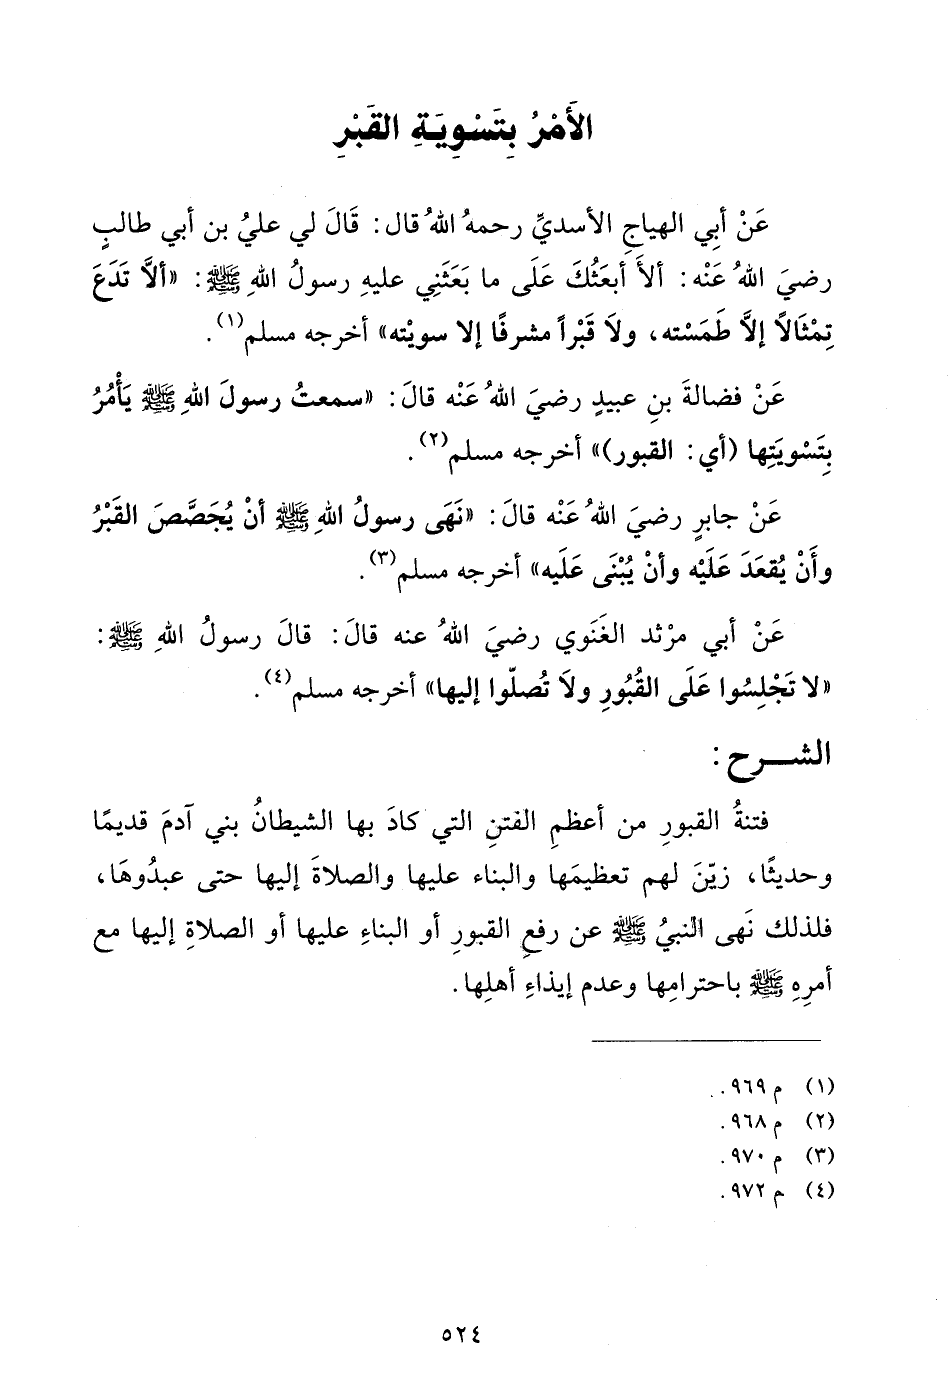 الأَمْرُ بِتَسْوِيَةِ القَبْرِ
عَنْ أَبِي الهياجِ الأسديِّ رحمهُ اللهُ قال: قَالَ لي عليُ بن أبي طالبٍ
رضيَ اللهُ عَنْه: ألاَ أبعَثُكَ عَلَى ما بَعَثَنِي عليهِ رسولُ اللهِ ﷺ: «ألاَّ تَدَعَ
تِمْثَالاً إلاَّ طَمَسْته، ولاَ قَبْراً مشرفًا إلا سويْته» أخرجه مسلم(١).
عَنْ فضالةَ بنِ عبيدٍ رضيَ اللهُ عَنْه قالَ: «سمعتُ رسولَ اللهِ ﷺ يَأْمُرُ
بِتَسْويَتِها (أي: القبور)» أخرجه مسلم(٢).
عَنْ جابرٍ رضيَ اللهُ عَنْه قالَ: «نَهَى رسولُ اللهِ ﷺ أنْ يُجَصَّصَ القَبْرُ
وأَنْ يُقعَدَ عَلَيْه وأنْ يُبْنَى عَلَيه» أخرجه مسلم(٣).
عَنْ أبي مرْثد الغَنَوي رضيَ اللهُ عنه قالَ: قالَ رسولُ اللهِ ﷺ:
«لا تَجْلِسُوا عَلَى القُبُورِ ولاَ تُصلّوا إليها» أخرجه مسلم(٤).
الشـــرح:
فتنةُ القبورِ من أعظمِ الفتنِ التي كادَ بها الشيطانُ بني آدمَ قديمًا
وحديثًا، زيّنَ لهم تعظيمَها والبناء عليها والصلاةَ إليها حتى عبدُوهَا،
فلذلك نَهى النبيُ ﷺ عن رفعِ القبورِ أو البناءِ عليها أو الصلاةِ إليها مع
أمرِهِ ﷺ باحترامِها وعدم إيذاءِ أهلِها.
(١) م ٩٦٩.
(٢) م ٩٦٨.
(٣) م ٩٧٠.
(٤) م ٩٧٢.
٥٢٤